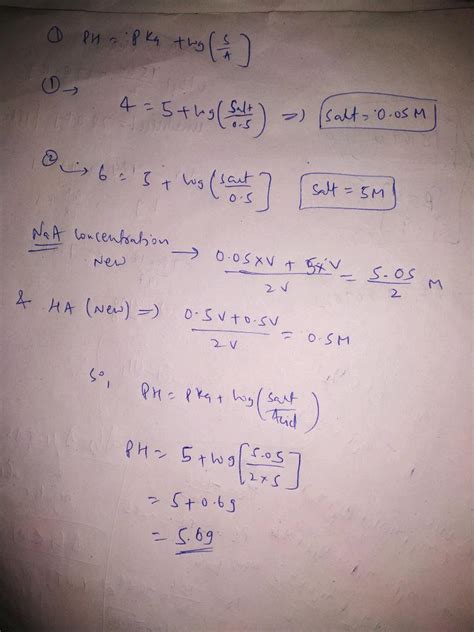 ① PH = PKa + log(S/A]
① → 4 = 5 + log(Salt/0.5) => Salt = 0.05M
② → 6 = 5 + log(salt/0.5] Salt = 5M
NaA Concentration New → 0.05xV + 5xV / 2V = 5.05/2 M
& HA (New) => 0.5V+0.5V / 2V = 0.5M
So,
PH = PKa + log(Salt/Acid)
PH = 5 + log[5.05/2x5]
= 5+0.69
= 5.69